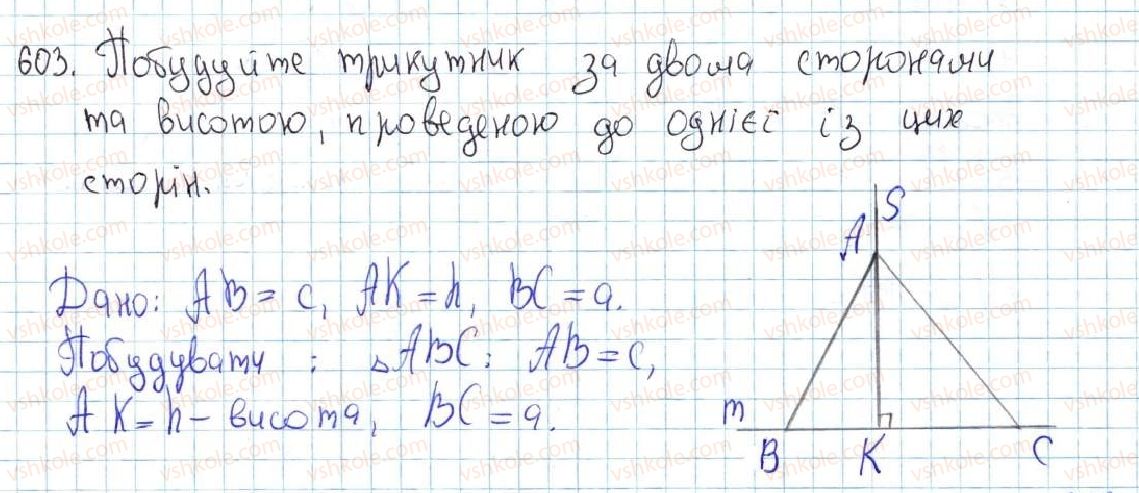 603. Побудуйте трикутник за двома сторонами
та висотою, проведеною до однієї із цих
сторін.
Дано: AB = c, AK = h, BC = a.
Побудувати: △ABC: AB = c,
AK = h – висота, BC = a.
S
A
m
B K C
vshkole.com